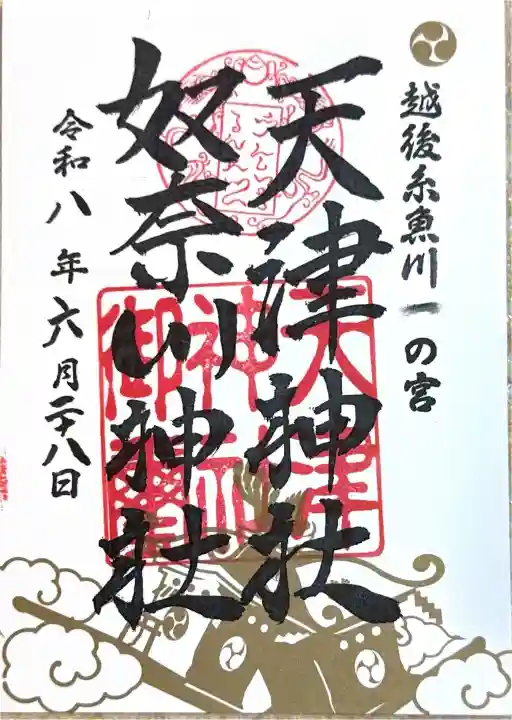 越後糸魚川一の宮
天津神社
奴奈川神社
令和八年六月二十八日
天津
神社
御璽